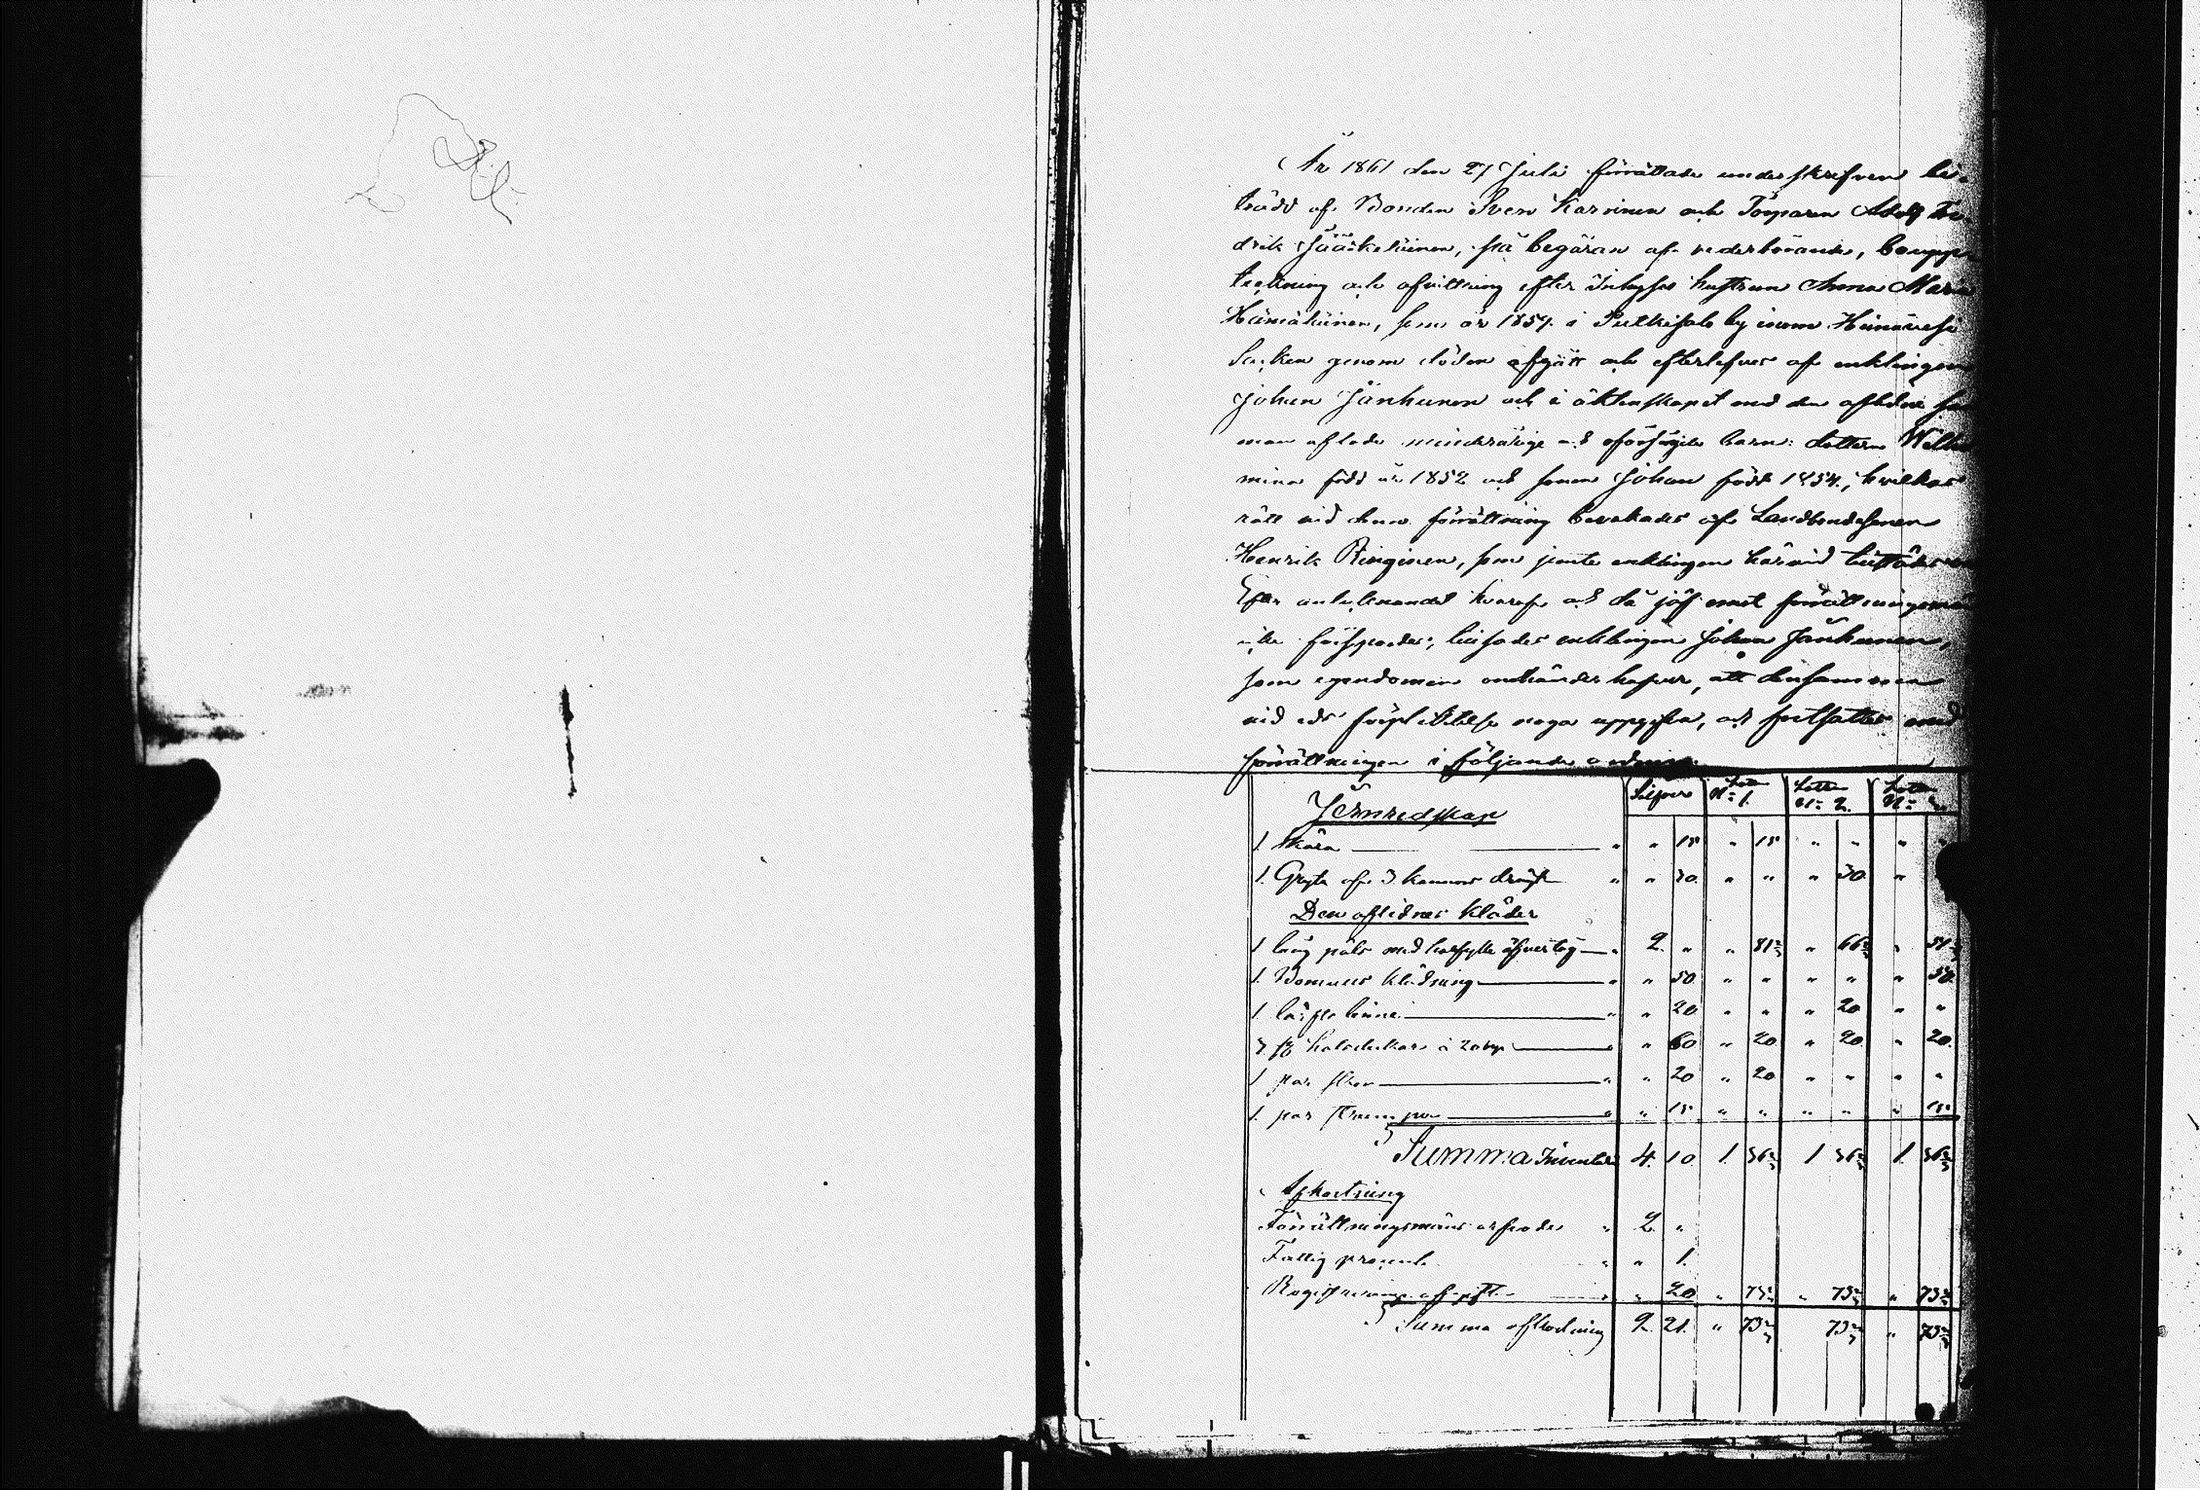 År 1861 den 27 Juli förrättade underskrifven bi-
trädd af Bonden Sven Karvinen och Torparen Adolf Fre
drik Jääskeläinen, på begäran af vederbörande, bouppe
teckning och afvittring efter Inhyses hustrun Anna Maria
Hämäläinen, som år 1857. i Putkisalo by inom Heinävesi
Socken genom döden afgått och efterlefves af enklingen
Johan Jänhunen och i äktenskapet med den aflidna
man aflade minderårige och oförsörgde barn: dottren Wilhel
mina född år 1852 och sonen Johan född 1854., hvilkas
rätt vid denna förrättning bevakades af Landbondesonen
Henrik Ringinen, som jemte enklingen härvid tillstädes var
Efter antecknandet häraf och då jäf emot förrättningsmän
icke försporde, tillsades enklingen Johan Jänhunen,
som egendomen omhänder hafver, att densamma
vid eds förpliktelse noga uppgifva, och fortsattes med
förrättningen i följande ordning.
Silfver Lotten N:o 1. Lotten N:o 2. Lotten N:o
Jernredskap
1. skära " " 15 " 15 " " " "
1. Gryta af 3 kannors drägt " " 30. " " " 30. "
Den aflidnes kläder
1 lång päls med öfvertog " 2. " " 81 2/3 " 66 2/3 "
1. Vomulls klädning " " 50. " " " " " 50.
1 linne " " 20 " " " 20 " "
3. st halsdukar à 20 kop " " 60 " 20. " 20. " 20.
1 par skor " " 20 " 20. " " " "
1. par strumpor " " 15. " " " " " 15.
Summa Inventarii 4. 10 1. 36 2/3 1 36 2/3 1. 36 2/3
Afkortning
Förrättningsmäns arfvode " 2. "
Fattig procent " " 1.
Registrerings afgift " " 20 " 73 2/3 " 73 2/3 " 73 2/3
Summa afkortning 2. 21. " 73 2/3 73 2/3 " 73 2/3